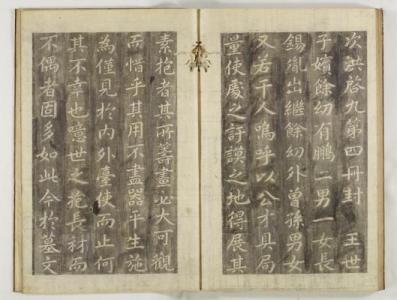 次洪啓九第四冊封　王世
子嬪餘幼有鵬二男一女長
錫胤出繼餘幼外曾孫男女
又若干人嗚呼以公才具局
量使處之訏謨之地得展其
素抱者其所籌畫必大可觀
而惜乎其用不盡器平生施
為僅見於內外臺使而止何
其不幸也噫世之抱長材而
不偶者固多如此今於墓文